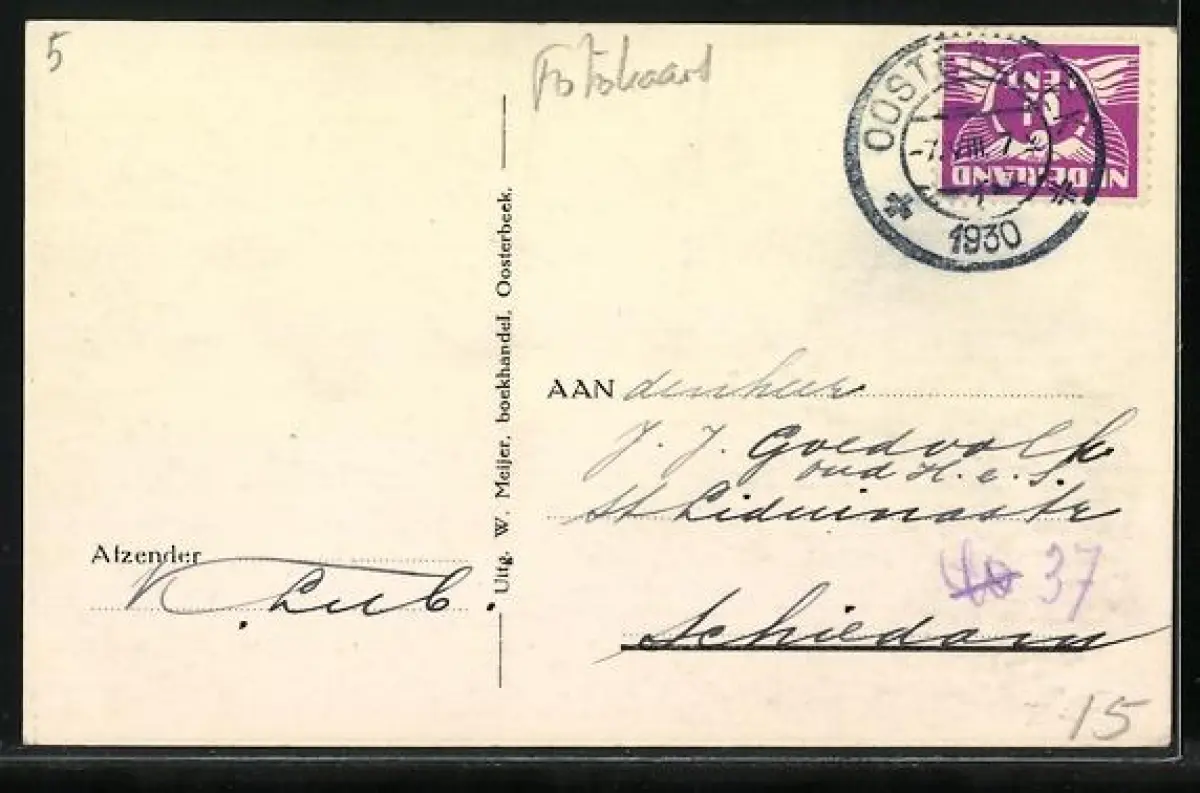 5
Fotokaart
OOSTERBEEK
-7.VIII. 7
1930
NEDERLAND
CENT
Uitg. W. Meijer, boekhandel, Oosterbeek.
AAN den heer
J. J. Goedvolk
oud H. o. S.
St Liduinastr
37
Schiedam
Afzender
Lub.
15